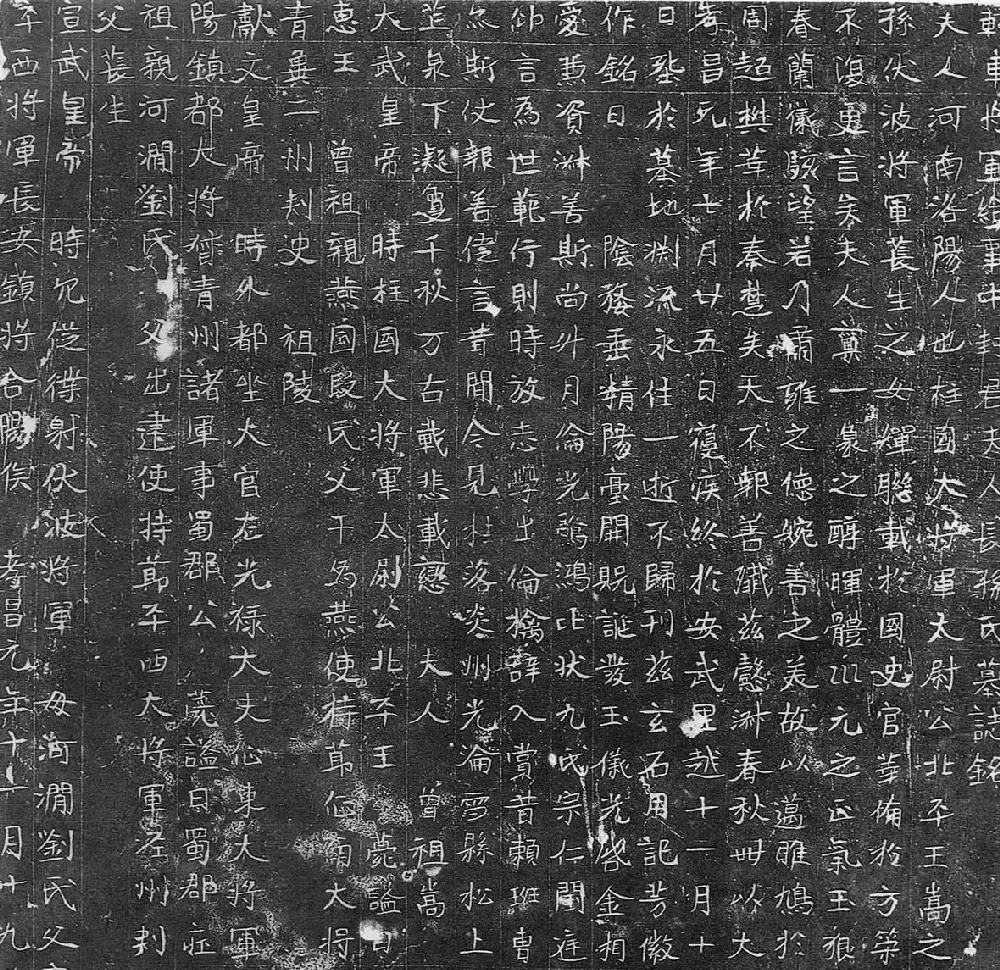 輕車將軍給事中封君夫人長孫氏墓誌銘
夫人河南洛陽人也柱國大將軍太尉公北平王嵩之
孫伏波將軍萇生之女輝聯載於國史官華備於方策
不復更言矣夫人稟一象之醇暉體川元之正氣玉狼
春蘭儀駭望若乃肅雍之德婉善之美故以邁雎鳩於
周超樊華於秦楚矣天不報善殲茲懿淋春秋卌以大
孝昌元年七月廿五日寢疾終於安武里越十一月十
日塟於墓地淵流永住一逝不歸刊茲玄石用記芳徽
作銘曰 陰婺垂精陽臺開貺誕發玉儀光啓金相
愛憙資淋善斯尚卅月倫光騖鴻比狀九氏宗仁閨庭
仰言爲世範行則時放志學出倫摛辭入賞昔賴班曹
斯仗報善僅言昔聞今見杜落炎州光淪雪縣松上
泉下凝夐千秋万古載悲載戀 夫人 曾祖嵩
大武皇帝 時柱国大將軍太尉公北平王 薨謚曰
惠王 曾祖親燕國段氏父干爲燕使持節征南大將
青冀二州刾史 祖陵
獻文皇帝 時外都坐大官左光禄大夫征東大將軍
陽鎮郡大將督青州諸軍事蜀郡公 薨謚曰蜀郡莊
祖親河澗劉氏父出建使持節平西大將軍涇州刾
父萇生
宣武皇帝 時冗從僕射伏波將軍 母河澗劉氏父
平西將軍長安鎮將合陽侯 孝昌元年十一月十九